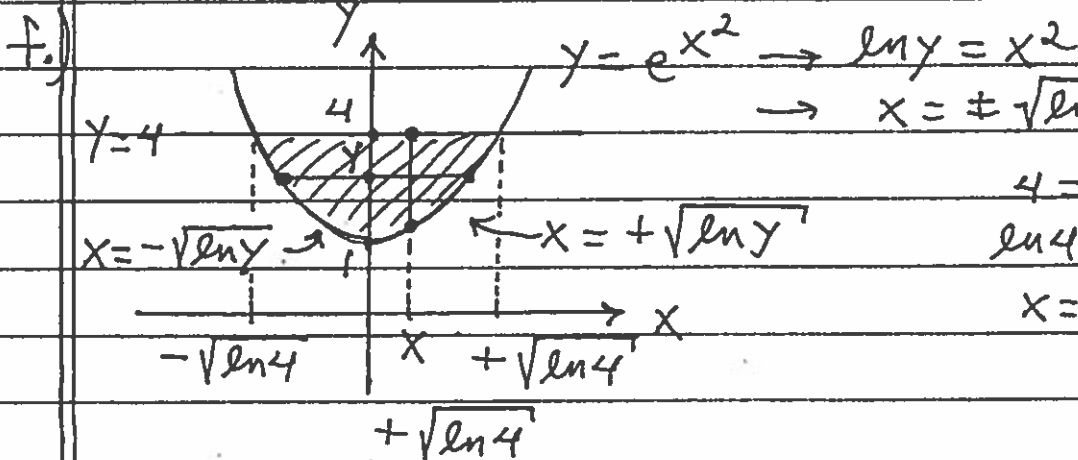 f.) y = e^{x^2} → ln y = x^2
→ x = ± √ln
y
4
y=4
y
4 =
x = -√ln y → ← x = +√ln y
ln 4
1
x =
x
-√ln 4 x +√ln 4
+√ln 4